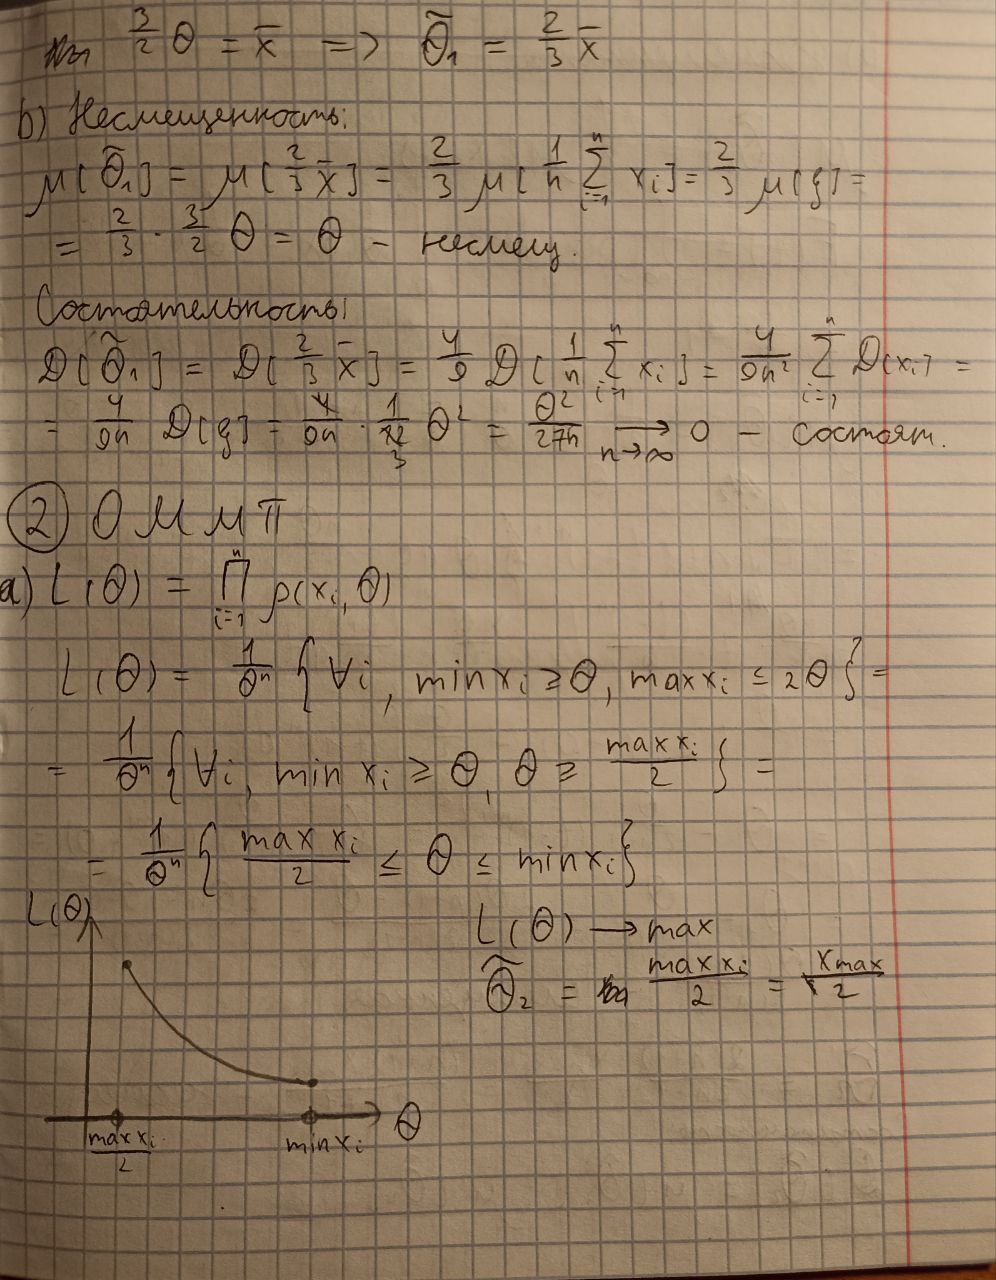 3/2 θ = x̄ => θ̃₁ = 2/3 x̄
b) Несмещенность:
M[θ̃₁] = M[2/3 x̄] = 2/3 M[1/n ∑ⁿᵢ₌₁ xᵢ] = 2/3 M[ξ] =
= 2/3 · 3/2 θ = θ – несмещ.
Состоятельность:
D[θ̃₁] = D[2/3 x̄] = 4/9 D[1/n ∑ⁿᵢ₌₁ xᵢ] = 4/9n² ∑ⁿᵢ₌₁ D(xᵢ) =
= 4/9n D[ξ] = 4/9n · 1/12 θ² = θ²/27n → 0 – состоят.
3 n→∞
② ОММП
a) L(θ) = ∏ⁿᵢ₌₁ p(xᵢ, θ)
L(θ) = 1/θⁿ {∀i, min xᵢ ≥ θ, max xᵢ ≤ 2θ} =
= 1/θⁿ {∀i, min xᵢ ≥ θ, θ ≥ max xᵢ/2} =
= 1/θⁿ {max xᵢ/2 ≤ θ ≤ min xᵢ}
L(θ)
L(θ) → max
θ̃₂ = max xᵢ/2 = xmax/2
θ
max xᵢ/2 min xᵢ